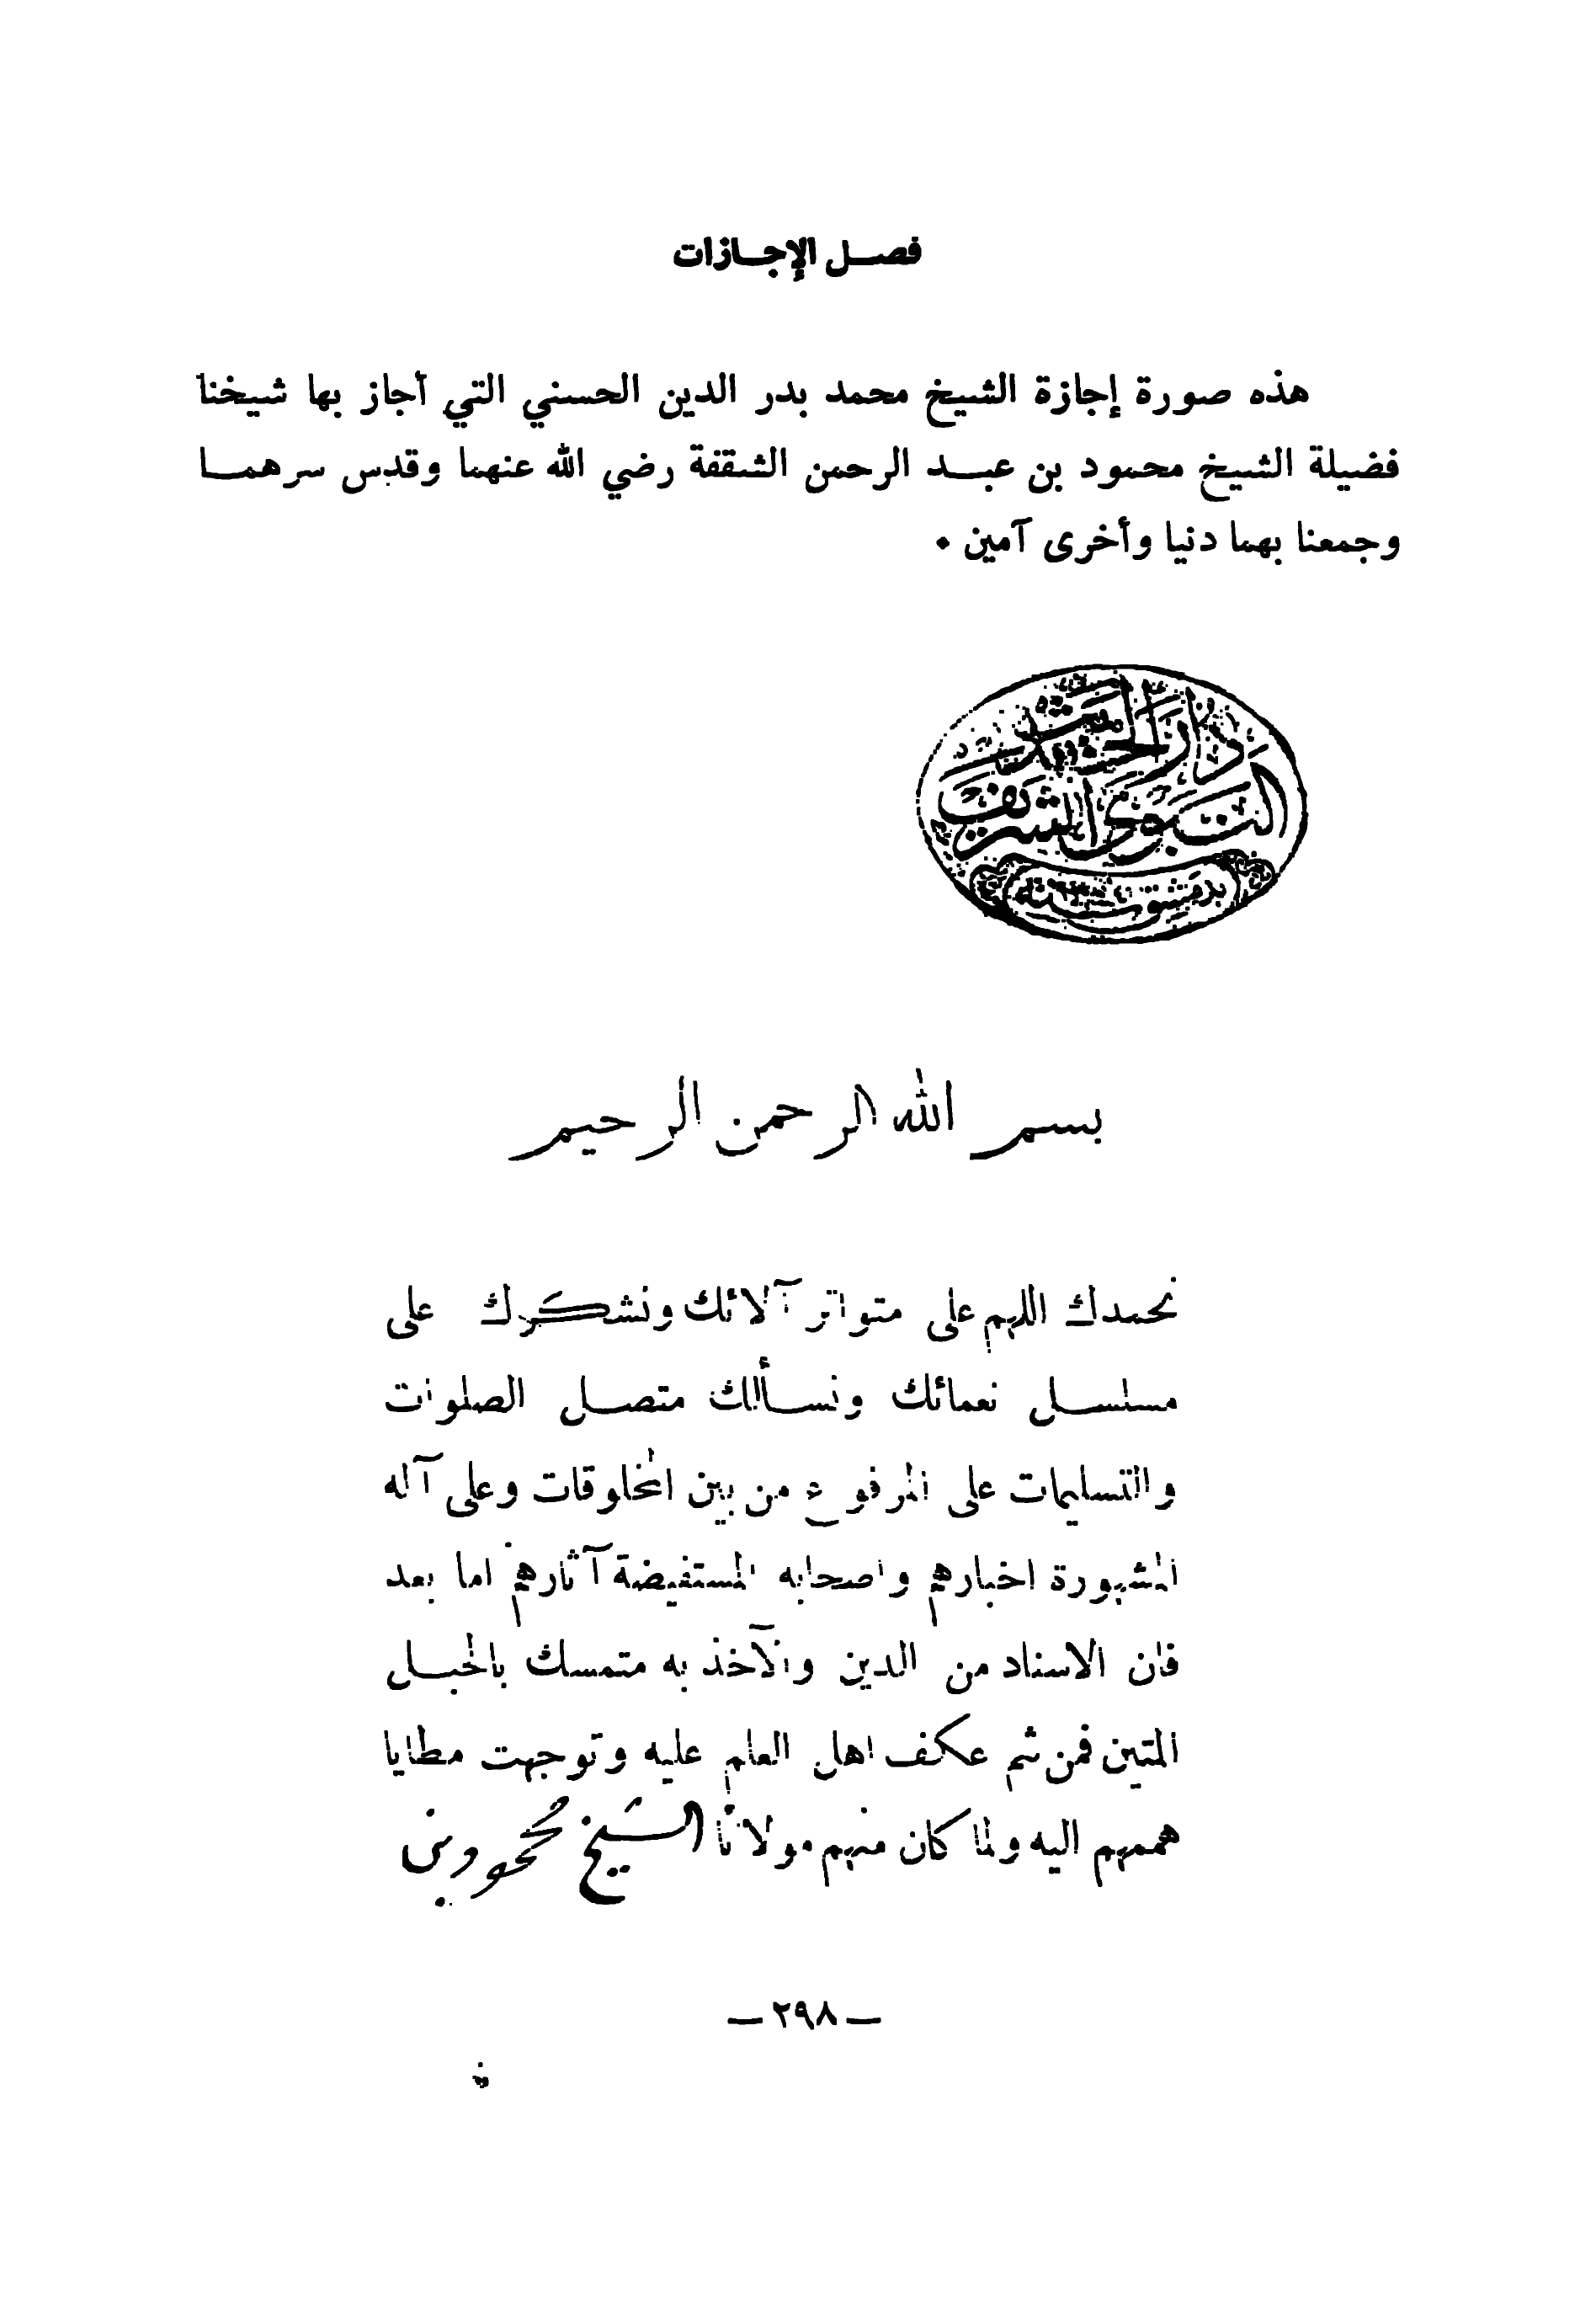 فصل الإجازات
هذه صورة إجازة الشيخ محمد بدر الدين الحسني التي أجاز بها شيخنا
فضيلة الشيخ محمود بن عبد الرحمن الشقفة رضي الله عنهما وقدس سرهما
وجمعنا بهما دنيا وأخرى آمين ٠
دار الحديث
النبوي الشريف
بدمشق سنة
بسم الله الرحمن الرحيم
نحمدك اللهم على متواتر آلائك ونشكرك على
مسلسل نعمائك ونسألك متصل الصلوات
والتسليمات على المرفوع من بين المخلوقات وعلى آله
المشهورة اخبارهم واصحابه المستفيضة آثارهم اما بعد
فان الاسناد من الدين والآخذ به متمسك بالحبل
المتين فمن ثم عكف اهل العلم عليه وتوجهت مطايا
هممهم اليه ولما كان منهم مولانا الشيخ محمود بن
— ٢٩٨ —